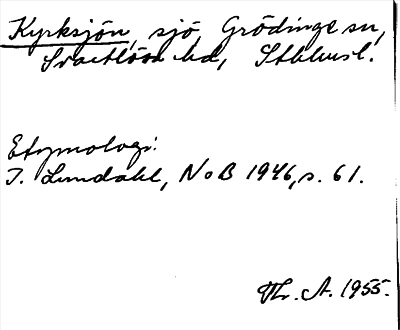 Kyrksjön, sjö, Grödinge sn,
Svartlösa hd, Sthlmsl.
Etymologi:
I. Lundahl, NoB 1946, s. 61.
Th. A. 1955.